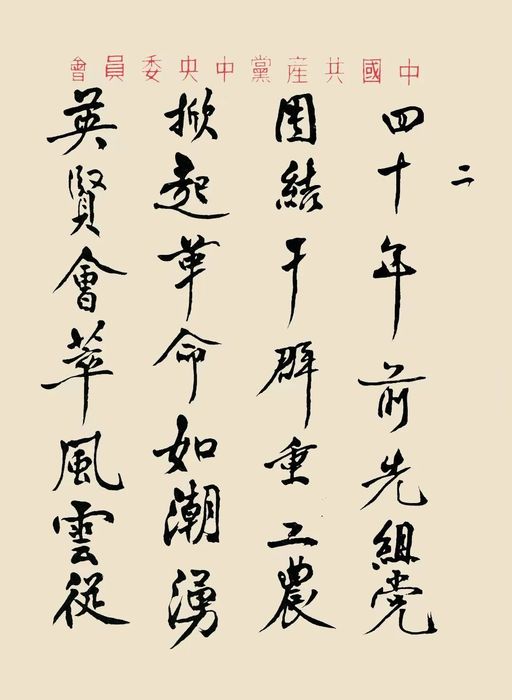 中國共産黨中央委員會
二
四十年前先組党
团結干群重工農
掀起革命如潮湧
英賢會萃風雲從